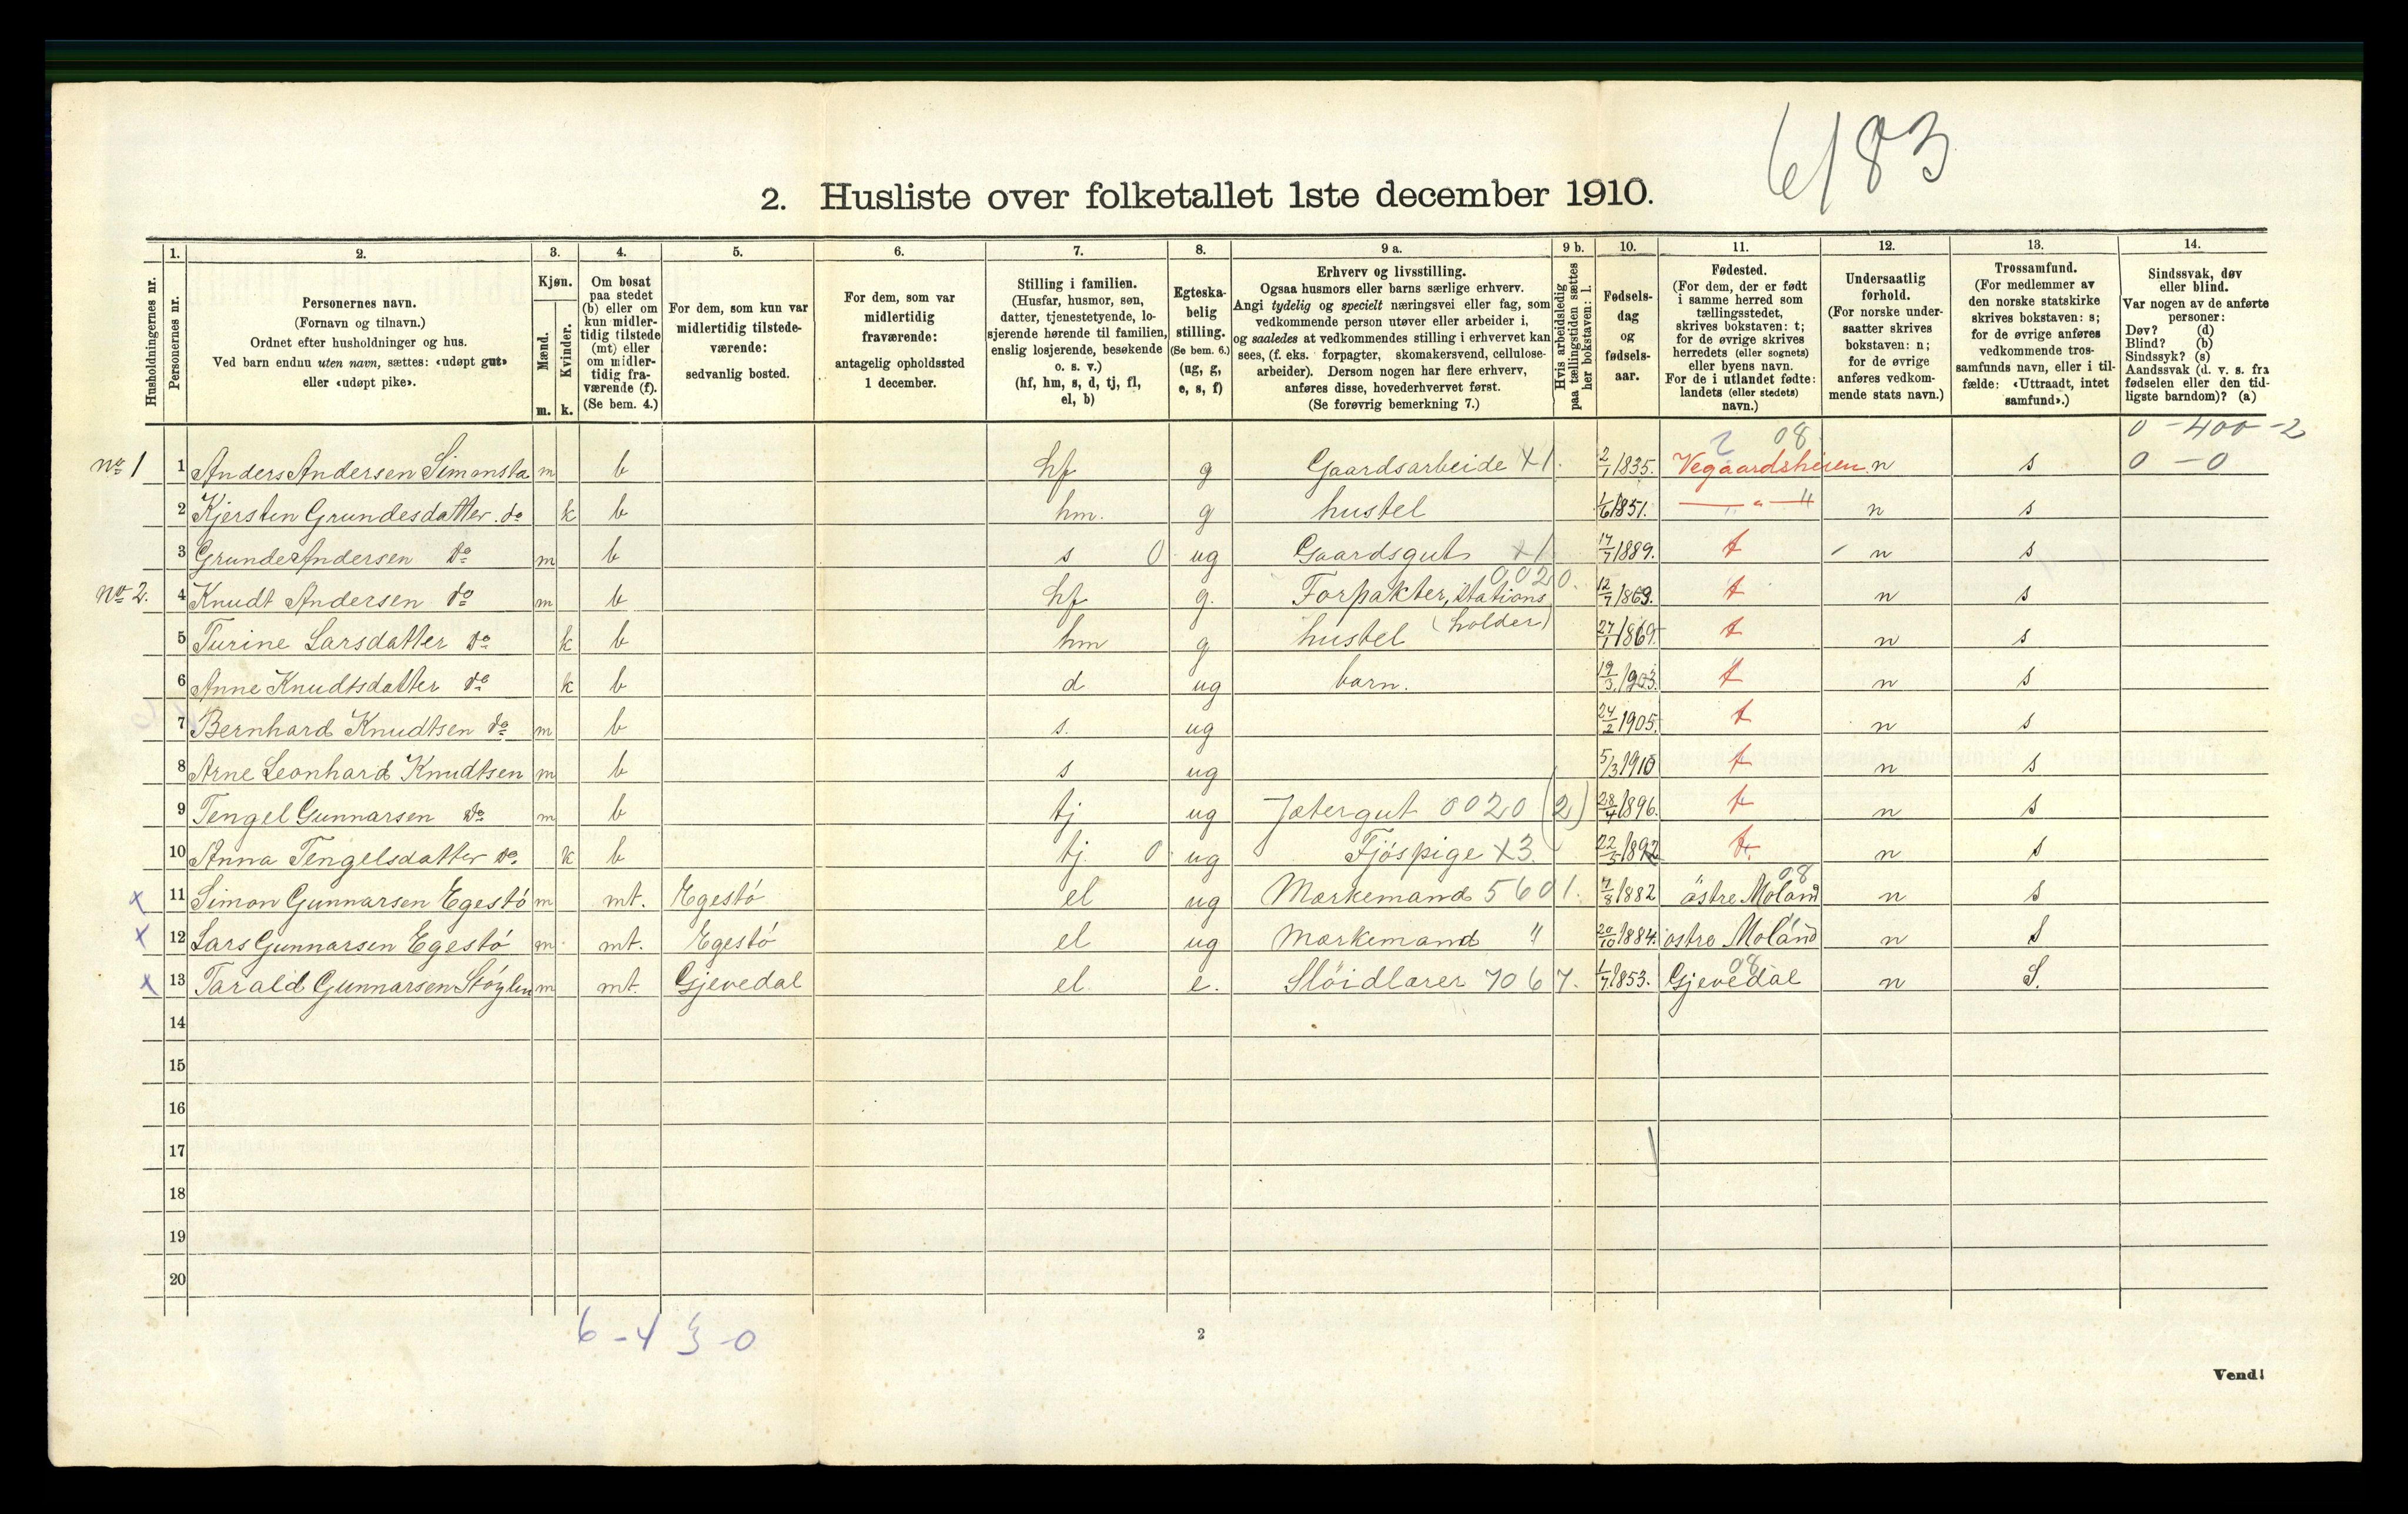 6/83
2. Husliste over folketallet 1ste december 1910.
Husholdningernes nr.
1.
Personernes nr.
2.
Personernes navn.
(Fornavn og tilnavn.)
Ordnet efter husholdninger og hus.
Ved barn endnu uten navn, sættes: «udøpt gut»
eller «udøpt pike».
3.
Kjøn.
Mænd.
Kvinder.
m. k.
4.
Om bosat
paa stedet
(b) eller om
kun midler-
tidig tilstede
(mt) eller
om midler-
tidig fra-
værende (f).
(Se bem. 4.)
5.
For dem, som kun var
midlertidig tilstede-
værende:
sedvanlig bosted.
6.
For dem, som var
midlertidig
fraværende:
antagelig opholdssted
1 december.
7.
Stilling i familien.
(Husfar, husmor, søn,
datter, tjenestetyende, lo-
sjerende hørende til familien,
enslig losjerende, besøkende
o. s. v.)
(hf, hm, s, d, tj, fl,
el, b)
8.
Egteska-
belig
stilling.
(Se bem. 6.)
(ug, g,
e, s, f)
9 a.
Erhverv og livsstilling.
Ogsaa husmors eller barns særlige erhverv.
Angi tydelig og specielt næringsvei eller fag, som
vedkommende person utøver eller arbeider i,
og saaledes at vedkommendes stilling i erhvervet kan
sees, (f. eks. forpagter, skomakersvend, cellulose-
arbeider). Dersom nogen har flere erhverv,
anføres disse, hovederhvervet først.
(Se forøvrig bemerkning 7.)
9 b.
Hvis arbeidsledig
paa tællingstiden sættes
her bokstaven: l.
10.
Fødsels-
dag
og
fødsels-
aar.
11.
Fødested.
(For dem, der er født
i samme herred som
tællingsstedet,
skrives bokstaven: t;
for de øvrige skrives
herredets (eller sognets)
eller byens navn.
For de i utlandet fødte:
landets (eller stedets)
navn.)
12.
Undersaatlig
forhold.
(For norske under-
saatter skrives
bokstaven: n;
for de øvrige
anføres vedkom-
mende stats navn.)
13.
Trossamfund.
(For medlemmer av
den norske statskirke
skrives bokstaven: s;
for de øvrige anføres
vedkommende tros-
samfunds navn, eller i til-
fælde: «Uttraadt, intet
samfund».)
14.
Sindssvak, døv
eller blind.
Var nogen av de anførte
personer:
Døv? (d)
Blind? (b)
Sindssyk? (s)
Aandssvak (d. v. s. fra
fødselen eller den tid-
ligste barndom)? (a)
08 0 - 400 - 2
No 1 1 Anders Andersen Simonsta m b hf g Gaardsarbeide X1. 2/1 1835. Vegaardsheien n s 0 - 0
2 Kjersten Grundesdatter do k b hm. g hustel 1/6 1851. — " — n s
3 Grunde Andersen do m b s 0 ug Gaardsgut X1 17/7 1889. t n s
0020.
No 2. 4 Knudt Andersen do m b hf g. Forpakter, Stations 12/7 1869. t n s
(holder)
5 Turine Larsdatter do k b hm g hustel 27/1 1869. t n s
6 Anne Knudtsdatter do k b d ug barn. 19/3 1903. t n s
7 Bernhard Knudtsen do m b s. ug 24/2 1905. t n s
8 Arne Leonhard Knudtsen m b s ug 5/3 1910 t n s
9 Tengel Gunnarsen do m b tj ug Jætergut 0020 (2) 28/4 1896. t n s
10 Anna Tengelsdatter do. k b tj. 0 ug Fjøspige X3. 22/3 1892 t. n s
08
x 11 Simon Gunnarsen Egestö m mt. Egestö el ug Mærkemand 5601. 7/8 1882 östre Moland n s
x 12 Lars Gunnarsen Egestö m mt. Egestö el ug Mærkemand " 20/10 1884. ostre Moland n s
08
x 13 Tarald Gunnarsen m mt. Gjevedal el. e. Slöidlærer 7067. 1/7 1853. Gjevedal n S.
14
15
16
17
18
19
20
6 - 4 3 - 0
2
Vend!